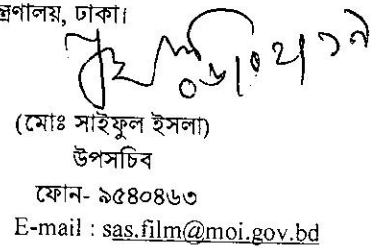 ন্ত্রণালয়, ঢাকা।
(মোঃ সাইফুল ইসলা)
উপসচিব
ফোন- ৯৫৪০৪৬৩
E-mail : sas.film@moi.gov.bd